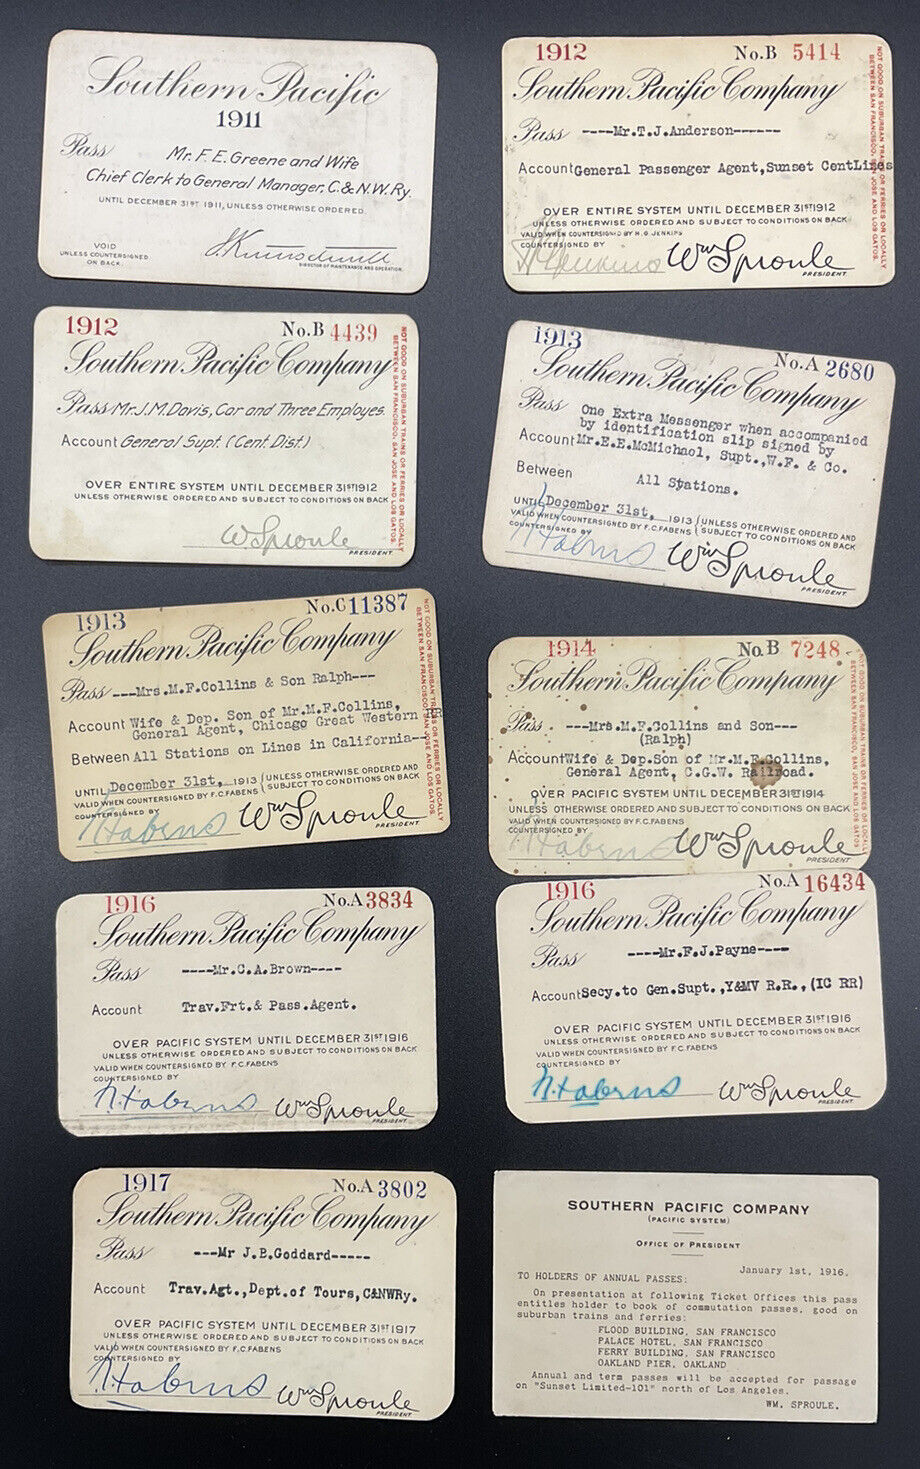 Southern Pacific
1911
Pass Mr. F. E. Greene and Wife
Chief Clerk to General Manager, C. & N. W. Ry.
UNTIL DECEMBER 31ST 1911, UNLESS OTHERWISE ORDERED.
VOID
UNLESS COUNTERSIGNED
ON BACK.
DIRECTOR OF MAINTENANCE AND OPERATION.
1912 No. B 5414
Southern Pacific Company
Pass ----Mr.T.J.Anderson------
Account General Passenger Agent,Sunset CentLines
OVER ENTIRE SYSTEM UNTIL DECEMBER 31ST 1912
UNLESS OTHERWISE ORDERED AND SUBJECT TO CONDITIONS ON BACK
VALID WHEN COUNTERSIGNED BY H. G. JENKINS
COUNTERSIGNED BY
HGJenkins Wm Sproule
PRESIDENT.
NOT GOOD ON SUBURBAN TRAINS OR FERRIES OR LOCALLY
BETWEEN SAN FRANCISCO, SAN JOSE AND LOS GATOS.
1912 No. B 4439
Southern Pacific Company
Pass Mr. J. M. Davis, Car and Three Employes.
Account General Supt. (Cent. Dist)
OVER ENTIRE SYSTEM UNTIL DECEMBER 31ST 1912
UNLESS OTHERWISE ORDERED AND SUBJECT TO CONDITIONS ON BACK
W. Sproule
PRESIDENT.
NOT GOOD ON SUBURBAN TRAINS OR FERRIES OR LOCALLY
BETWEEN SAN FRANCISCO, SAN JOSE AND LOS GATOS.
1913 No. A 2680
Southern Pacific Company
Pass One Extra Messenger when accompanied
by identification slip signed by
Account Mr.E.E.McMichael, Supt.,W.F. & Co.
Between All Stations.
UNTIL December 31st, 1913 { UNLESS OTHERWISE ORDERED AND
VALID WHEN COUNTERSIGNED BY F. C. FABENS { SUBJECT TO CONDITIONS ON BACK
COUNTERSIGNED BY
Fabens Wm Sproule
PRESIDENT.
1913 No. C 11387
Southern Pacific Company
Pass ---Mrs.M.F.Collins & Son Ralph---
Account Wife & Dep. Son of Mr.M.F.Collins,
General Agent, Chicago Great Western RR
Between All Stations on Lines in California--
UNTIL December 31st, 1913 { UNLESS OTHERWISE ORDERED AND
VALID WHEN COUNTERSIGNED BY F. C. FABENS { SUBJECT TO CONDITIONS ON BACK
COUNTERSIGNED BY
Fabens Wm Sproule
PRESIDENT.
NOT GOOD ON SUBURBAN TRAINS OR FERRIES OR LOCALLY
BETWEEN SAN FRANCISCO, SAN JOSE AND LOS GATOS.
1914 No. B 7248
Southern Pacific Company
Pass ---Mrs.M.F.Collins and Son---
(Ralph)
Account Wife & Dep.Son of Mr.M.F.Collins,
General Agent, C.G.W. Railroad.
OVER PACIFIC SYSTEM UNTIL DECEMBER 31ST 1914
UNLESS OTHERWISE ORDERED AND SUBJECT TO CONDITIONS ON BACK
VALID WHEN COUNTERSIGNED BY F. C. FABENS
COUNTERSIGNED BY
Fabens Wm Sproule
PRESIDENT.
NOT GOOD ON SUBURBAN TRAINS OR FERRIES OR LOCALLY
BETWEEN SAN FRANCISCO, SAN JOSE AND LOS GATOS.
1916 No. A 3834
Southern Pacific Company
Pass ----Mr.C.A.Brown----
Account Trav.Frt.& Pass.Agent.
OVER PACIFIC SYSTEM UNTIL DECEMBER 31ST 1916
UNLESS OTHERWISE ORDERED AND SUBJECT TO CONDITIONS ON BACK
VALID WHEN COUNTERSIGNED BY F. C. FABENS
COUNTERSIGNED BY
Fabens Wm Sproule
PRESIDENT.
1916 No. A 16434
Southern Pacific Company
Pass ----Mr.F.J.Payne----
Account Secy.to Gen.Supt.,Y&MV R.R.,(IC RR)
OVER PACIFIC SYSTEM UNTIL DECEMBER 31ST 1916
UNLESS OTHERWISE ORDERED AND SUBJECT TO CONDITIONS ON BACK
VALID WHEN COUNTERSIGNED BY F. C. FABENS
COUNTERSIGNED BY
Fabens Wm Sproule
PRESIDENT.
1917 No. A 3802
Southern Pacific Company
Pass ---Mr J.B.Goddard-----
Account Trav.Agt.,Dept.of Tours,C&NWRy.
OVER PACIFIC SYSTEM UNTIL DECEMBER 31ST 1917
UNLESS OTHERWISE ORDERED AND SUBJECT TO CONDITIONS ON BACK
VALID WHEN COUNTERSIGNED BY F. C. FABENS
COUNTERSIGNED BY
Fabens Wm Sproule
PRESIDENT.
SOUTHERN PACIFIC COMPANY
(PACIFIC SYSTEM)
OFFICE OF PRESIDENT
January 1st, 1916.
TO HOLDERS OF ANNUAL PASSES:
On presentation at following Ticket Offices this pass
entitles holder to book of commutation passes, good on
suburban trains and ferries:
FLOOD BUILDING, SAN FRANCISCO
PALACE HOTEL, SAN FRANCISCO
FERRY BUILDING, SAN FRANCISCO
OAKLAND PIER, OAKLAND
Annual and term passes will be accepted for passage
on "Sunset Limited-101" north of Los Angeles.
WM. SPROULE.